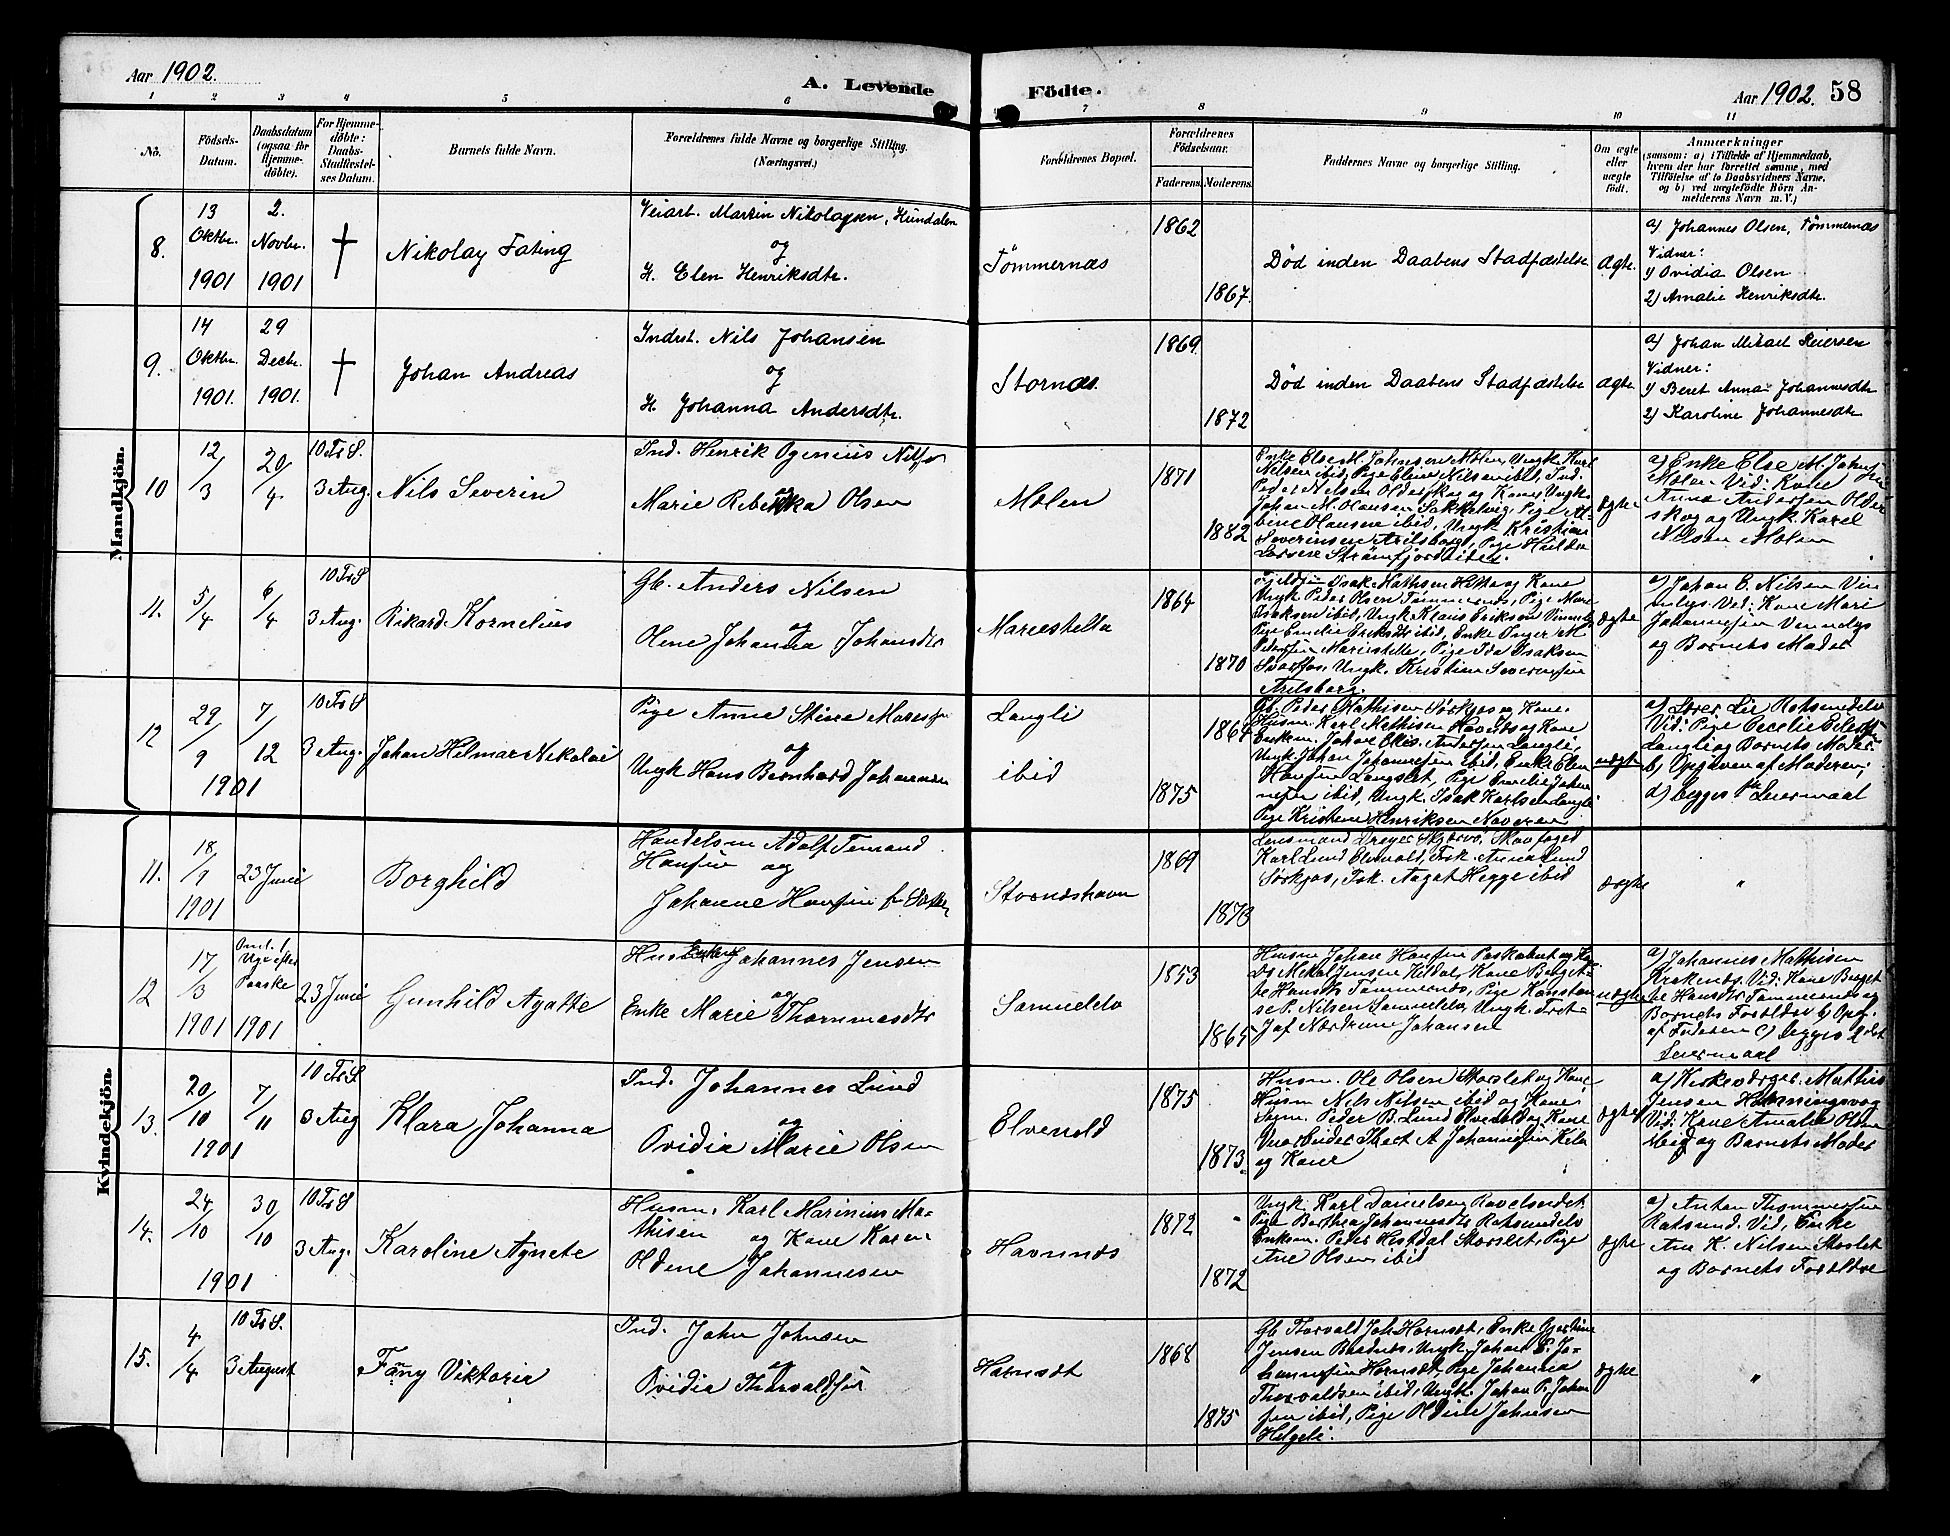 Aar 1902.
A. Levende Födte.
Aar 1902. 58
1 2 3 4 5 6 7 8 9 10 11
No.
Födsels-
Datum.
Daabsdatum
(ogsaa for
Hjemme-
döbte).
For Hjemme-
döbte:
Daabs-
Stadfæstel-
ses Datum.
Barnets fulde Navn.
Forældrenes fulde Navne og borgerlige Stilling.
(Næringsvei.)
Forældrenes Bopæl.
Forældrenes
Födselsaar.
Faderens. Moderens.
Faddernes Navne og borgerlige Stilling.
Om ægte
eller
uægte
födt.
Anmærkninger
(saasom: a) i Tilfælde af Hjemmedaab,
hvem der har forrettet samme, med
Tilföielse af to Daabsvidners Navne,
og b) ved uægtefödte Börn An-
melderens Navn m. V.)
Mandkjön.
8.
13
Oktbr.
1901
2.
Novbr.
1901
†
Nikolay Fating
Veiarb. Martin Nikolaysen, Hundalen
og
H. Elen Henriksdtr.
Tömmernæs
1862
1867.
Död inden Daabens Stadfæstelse
Ægte.
a) Johannes Olsen, Tømmernæs
Vidner:
1) Ovidia Olsen
2) Amalie Henriksdtr.
9.
14
Oktbr.
1901.
29
Decbr.
1901.
†
Johan Andreas
Indrst. Nils Johansen
og
H. Johanna Andersdtr.
Stornæs.
1869.
1872
Död inden Daabens Stadfæstelse
Ægte
a) Johan Mikael Reiersen
Vidner:
1) Beret Anna Johannesdtr
2) Karoline Johannesdtr
10
12
/3
20/
4
10 Fr S.
3 Aug.
Nils Severin
Ind. Henrik Ogenius Nilss.
og
Marie Rebekka Olsen
Molen
1871
1882
Enke Else M. Johnsen Molen, Ungk. Karl
Nilsen ibid, Pige Eline Nilsen ibid, Ind.
Peder Nilsen Olderskog og Kone, Ungk.
Johan M. Hansen Sokkelvig, Pige Al-
bine Hansen ibid, Ungk. Kristian
Severinsen Arilsborg, Pige Hulda
Larsen Strømfjordeidet.
Ægte
a) Enke Else M. Johns.
Molen. Vid: Kone
Anna Andersen Older
skog og Ungk. Karel
Nilsen Molen
11.
5/
4
6
/4
10 Fr S
3 Aug.
Rikard Kornelius
Gb. Anders Nilsen
og
Oline Johanna Johansdtr
Mariestella
1864
1870
Isak Mathisen og Kone
Ungk. Peder Olsen Tømmernæs, Pige Mari
Isaksen ibid, Ungk Klaus Eriksen
Pige Emilie Eriksdtr ibid, Enke Inger M.
Pedersen Mariestella, Pige Ida Isaksen
Svartfos, Ungk. Kristian Severinsen
Arilsborg.
Ægte
a) Johan C. Nilsen
Vid: Kone Mari
Johannesen
og Barnets Moder
12
29
/9
1901
7
/12
10 Fr S
3 Aug.
Johan Hilmar Nikolai
Pige Anne Stine
og
Ungk Hans Bernhard Johannesen
Langli
ibid
1864
1875
Gb. Peder Mathisen Sørkjos og Kone.
Husm. Karl Mathisen og Kone
Enkem. Johan Andersen Langli,
Ungk. Johan Johannesen ibid, Enke Elen
Hansen Langslet, Pige Emilie Johan
nesen ibid, Ungk. Isak Karlsen Langli
Pige Kristine Henriksen Naveren
uægte
a) Lærer Lie Rotsundelv
Vid: Pige Cecilie
Langli og Barnets Moder.
b) Opgaven af Moderen;
d) begges Leiermaal
Kvindekjön.
11.
18
/9
1901
23 Juni
Borghild
Handelsm Adolf
Hansen og
Johanne Hansen
Storneshavn
1869
1873
Lensmand Dreyer Skjervø, Skovfoged
Karl Lund Elvevold, Frk. Anna Lund
Sørkjos, Frk. Aagot Hegge ibid
Ægte
"
12
17
/3
1901
Omtr. 1
Uge efter
Paaske
1901
23 Juni
Gunhild Agatte
Husm Johannes Jensen
og
Enke Marie Thommasdtr
Samuelelv
1853
1865
Husm Johan Hansen
Mikal Jensen Kildal, Kone Berget-
te Hansdtr Tømmernæs, Pige Konstan
se P. Nilsen Samuelelv, Ungk. Frit-
jof Nordrum Johansen
uægte
a) Johannes Mathisen
Vid: Kone Berget
te Hansdtr Tømmernæs og
Barnets Forældre b) Opg.
af Faderen c) Begges 2det
Leiermaal
13.
20/
10
1901
7
/11
10 Fr S
3 Aug
Klara Johanna
Ind. Johannes Lund
og
Ovidia Marie Olsen
Elvevold
1875
1873
Husm. Ole Olsen Storslet og Kone
Husm Nils Nilsen ibid og Kone.
Peder B. Lund Elvevold og Kone
A Johannesen
og Kone
Ægte
a) Kirkeværge Mathis
Jensen Havningsvag
Vid: Kone Amalie Olsen
ibid og Barnets Moder
14.
24
/10
1901
30
/10
10 Fr S
3 Aug.
Karoline Agnete
Husm. Karl Marinius Ma-
thisen og Kone Karen
Oldine Johannesen
Havnnæs
1872
1872
Ungk. Karl Danielsen Ravelseidet
Pige Berthea Johannesdtr Rotsundelv
Enkem. Peder Hestdal Storslet, Pige
Ane Olsen ibid
Ægte
a) Anton Thommesen
Rotsund. Vid, Enke
Ane K. Nilsen Storslet
og Barnets Forældre
15.
4
/4
10 Fr S.
3 August
Fanny Viktoria
Ind. John Johnsen
og
Ovidia Thorvaldsen
Havnsæt
1868
1875
Gb Thorvald Joh Hamsæt, Enke
Jensen Ungk. Johan E. Jo-
hannesen Hamsæt, Pige Johanna
Thorvaldsen ibid, Ungk. Johan P. Johan
sen ibid, Pige Oldine Johnsen
Helgeli.
Ægte
"